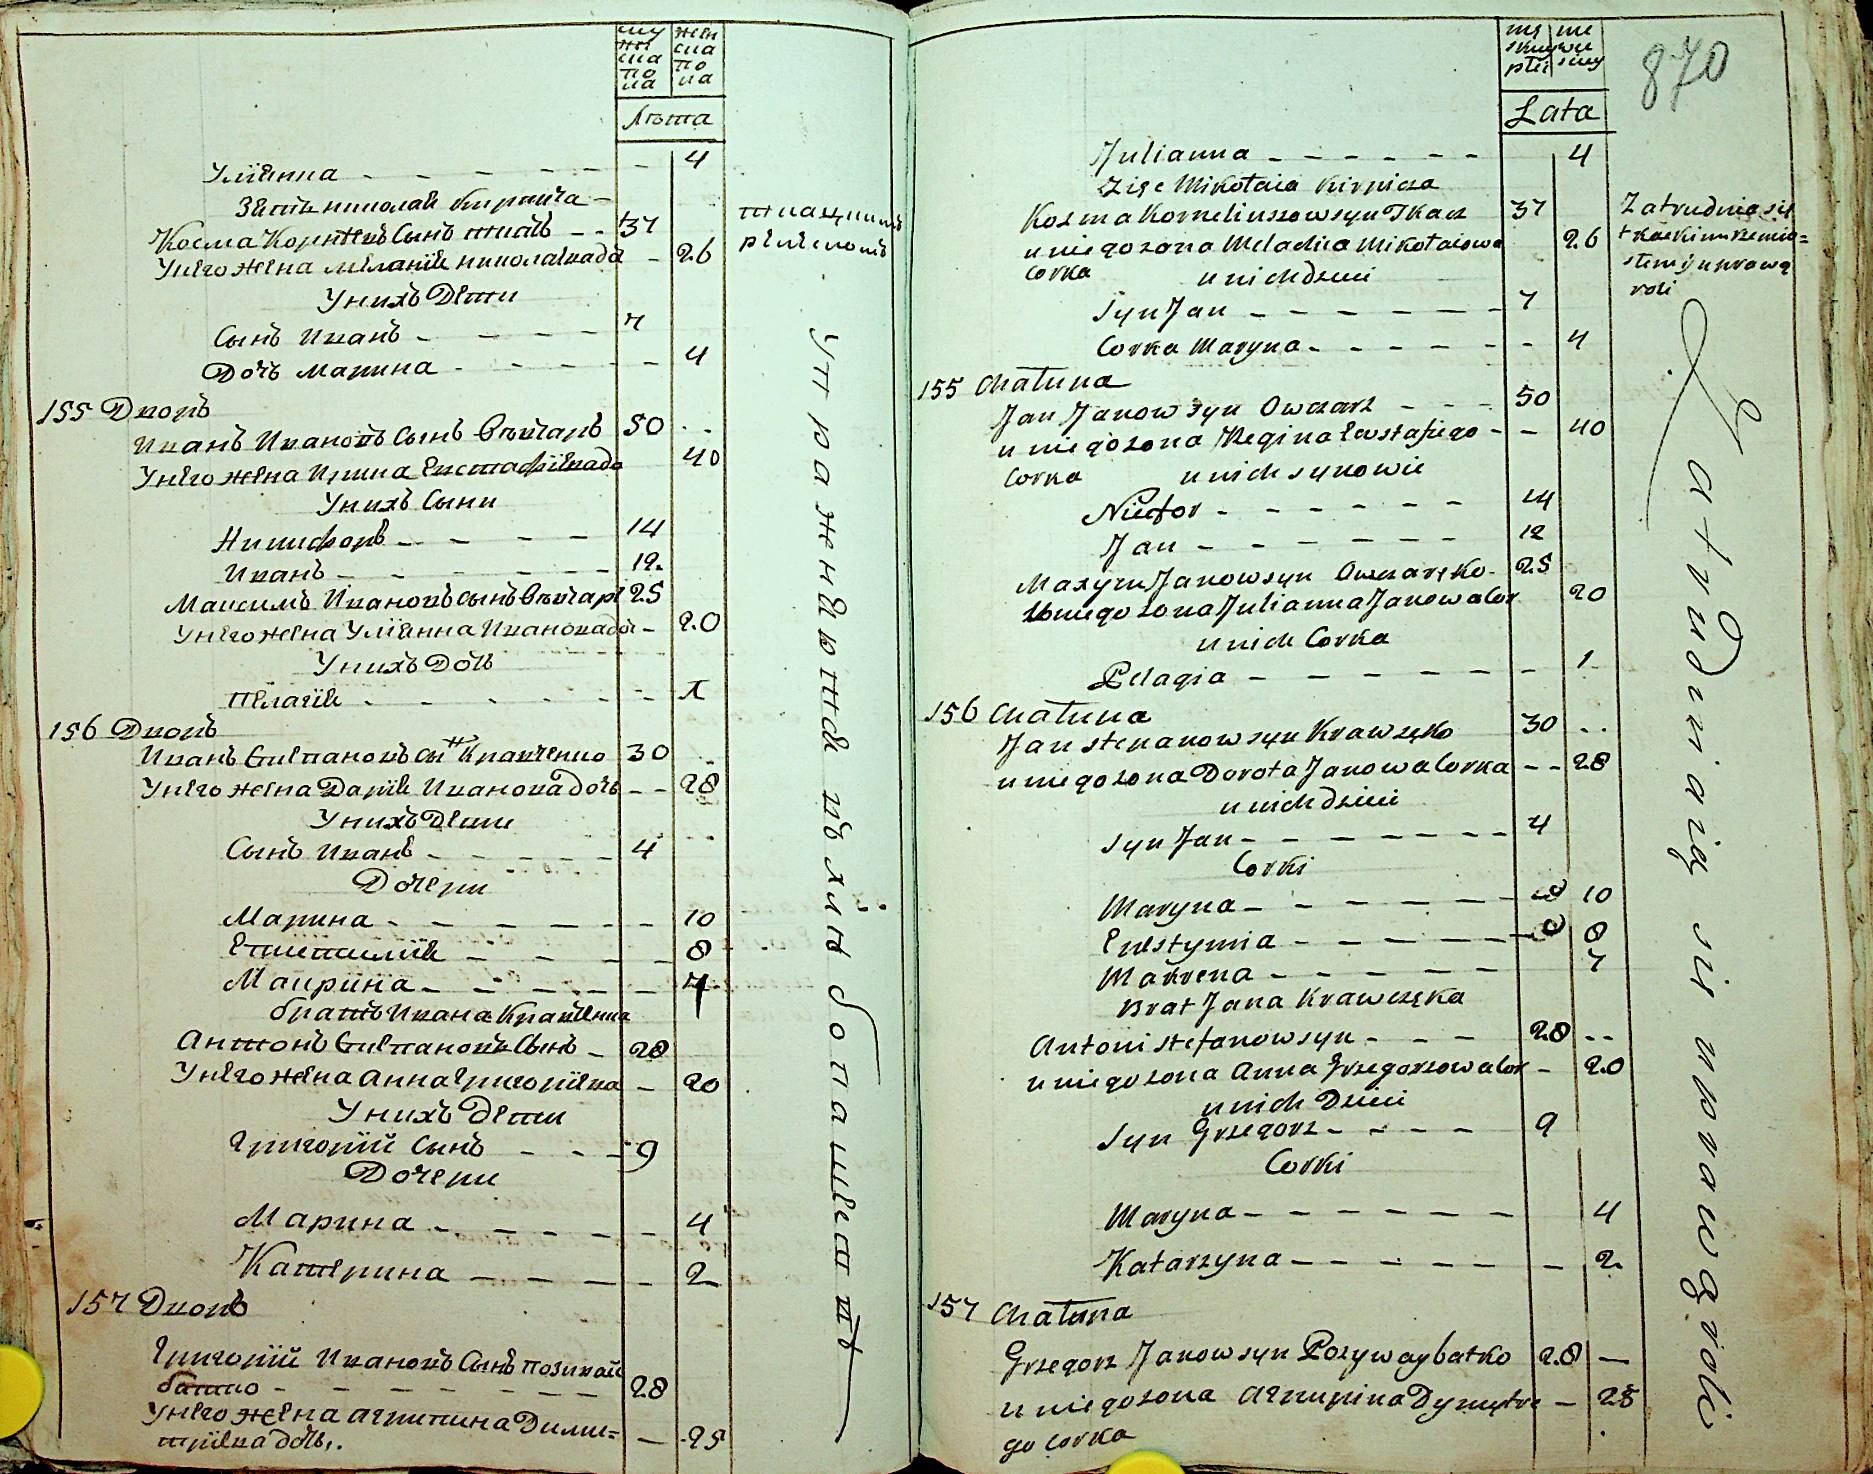 му жe
жи ска
ска по
по ла
ла
Лѣта
Улiянна - - - - - - 4
Зять николая кирпича -
Косма Корнѣевъ Сынъ ткачъ - - 37
Унего жена меланiя николаевадо - 26
Унихъ Дети
Сынъ Иванъ - - - - 7
Дочь Марина - - - - 4
155 Дворъ
Иванъ Ивановъ Сынъ Овчаръ 50 - -
Унего жена Ирина Евстафiевадо 40
Унихъ Сыни
Никифоръ - - - - 14
Иванъ - - - - - - 12.
Максимъ Ивановъ сынъ Овчаръ 25
Унего жена Улiянна Ивановадо - 20
Унихъ Дочь
Пелагiя - - - - - - 1
156 Дворъ
Иванъ Степановъ сынъ Кравченко 30 - -
Унего жена Дарiя Иванова дочь - - 28
Унихъ Дети
Сынъ Иванъ - - - - - 4
Дочери
Марина - - - - - - 10
- - - - - 8
Макрина - - - - - - 7
братъ Ивана Кравченка
Антонъ Степановъ Сынъ - 28
Унего жена Анна Григорiева - 20
Унихъ Дети
Григорiй Сынъ - - - 9
Дочери
Марина - - - - - - 4
Катерина - - - - - 2
157 Дворъ
Григорiй Ивановъ Сынъ позивай
батко - - - - - - - - 28
Унего жена Агрипина Дими=
трiева дочь.. - 25
ткацкимъ
Упражняются въ хлебопашествѣ
870
mę że
skiey
płci
Lata
Julianna - - - - - - 4
Zięc Mikołaia Kirpicza
Kozma Korneliuszow syn Tkacz 37
u niego zona Melachia Mikołaiowa 26
Corka u nich dzieci
Syn Jan - - - - - - 7
Corka Maryna - - - - - - - 4
155 Chałupa
Jan Janow Syn Owczarz - - - 50
u niego zona Regina Eustafiego - - 40
Corka u nich synowie
Nicefor - - - - - - 14
Jan - - - - - - - 12
Maxym Janow syn Owczarzko - 25
U niego zona Julianna Janowa Cor 20
u nich Corka
Pelagia - - - - - - - 1
156 Chałupa
Jan Stepanow syn Krawczęko 30 - -
u niego zona Dorota Janowa Corka - - 28
u nich dzieci
Syn Jan - - - - - - - - 4
Corki
Maryna - - - - - - 10
- - - - - - 8
Makrena - - - - - - 7
Brat Jana Krawczęka
Antoni Stefanow syn - - - - 28 - -
u niego zona Anna Grzegorzowa Cor - 20
u nich Dzieci
Syn Grzegorz - - - - 9
Corki
Maryna - - - - - - - 4
Katarzyna - - - - - - - 2
157 Chałupa
Grzegorz Janow syn Pozyway batko 28 -
u niego zona Agrupina Dymytre - 25
go Corka
Zatrudnia się
tkackim rzemio=
słem i uprawą
roli
Zatrudniaią się uprawą roli